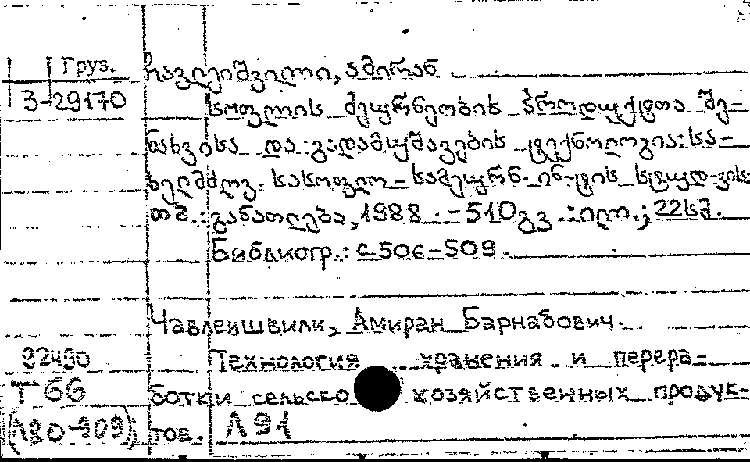 Груз.
ჩავლეიშვილი, ამირან
3-29170
სოფლის მეურნეობის პროდუქტთა შე-
ნახვისა და გადამუშავების ტექნოლოგია: სა-
ხელმძღვ. სასოფლო-სამეურნ. ინ-ტის სტუდ-ვის
თბ.: განათლება, 1988. - 510 გვ.: ილ.; 22 სმ.
Библиогр.: с. 506-509.
Чавлеишвили, Амиран Барнабович.
92490 Технология хранения и перера-
Т 66 ботки сельскохозяйственных продук-
тов. Л91